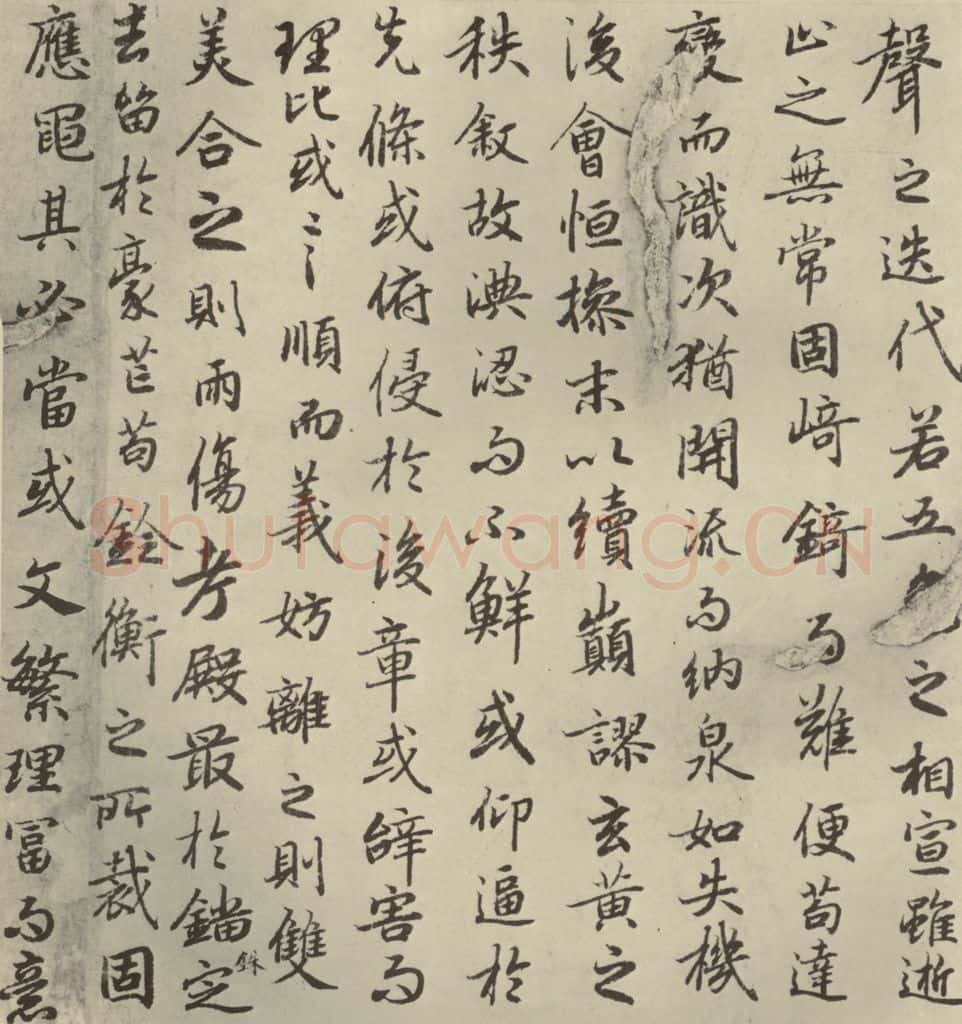 聲之迭代若五色之相宣雖逝
止之無常固崎錡而難便苟達
變而識次猶開流而納泉如失機
後會恒操末以續巔謬玄黃之
秩敘故淟涊而不鮮或仰逼於
先條或俯侵於後章或辭害而
理比或言順而義妨離之則雙
美合之則兩傷考殿最於錙銖定
去留於豪芒苟銓衡之所裁固
應繩其必當或文繁理富而意
Shufawang.CN